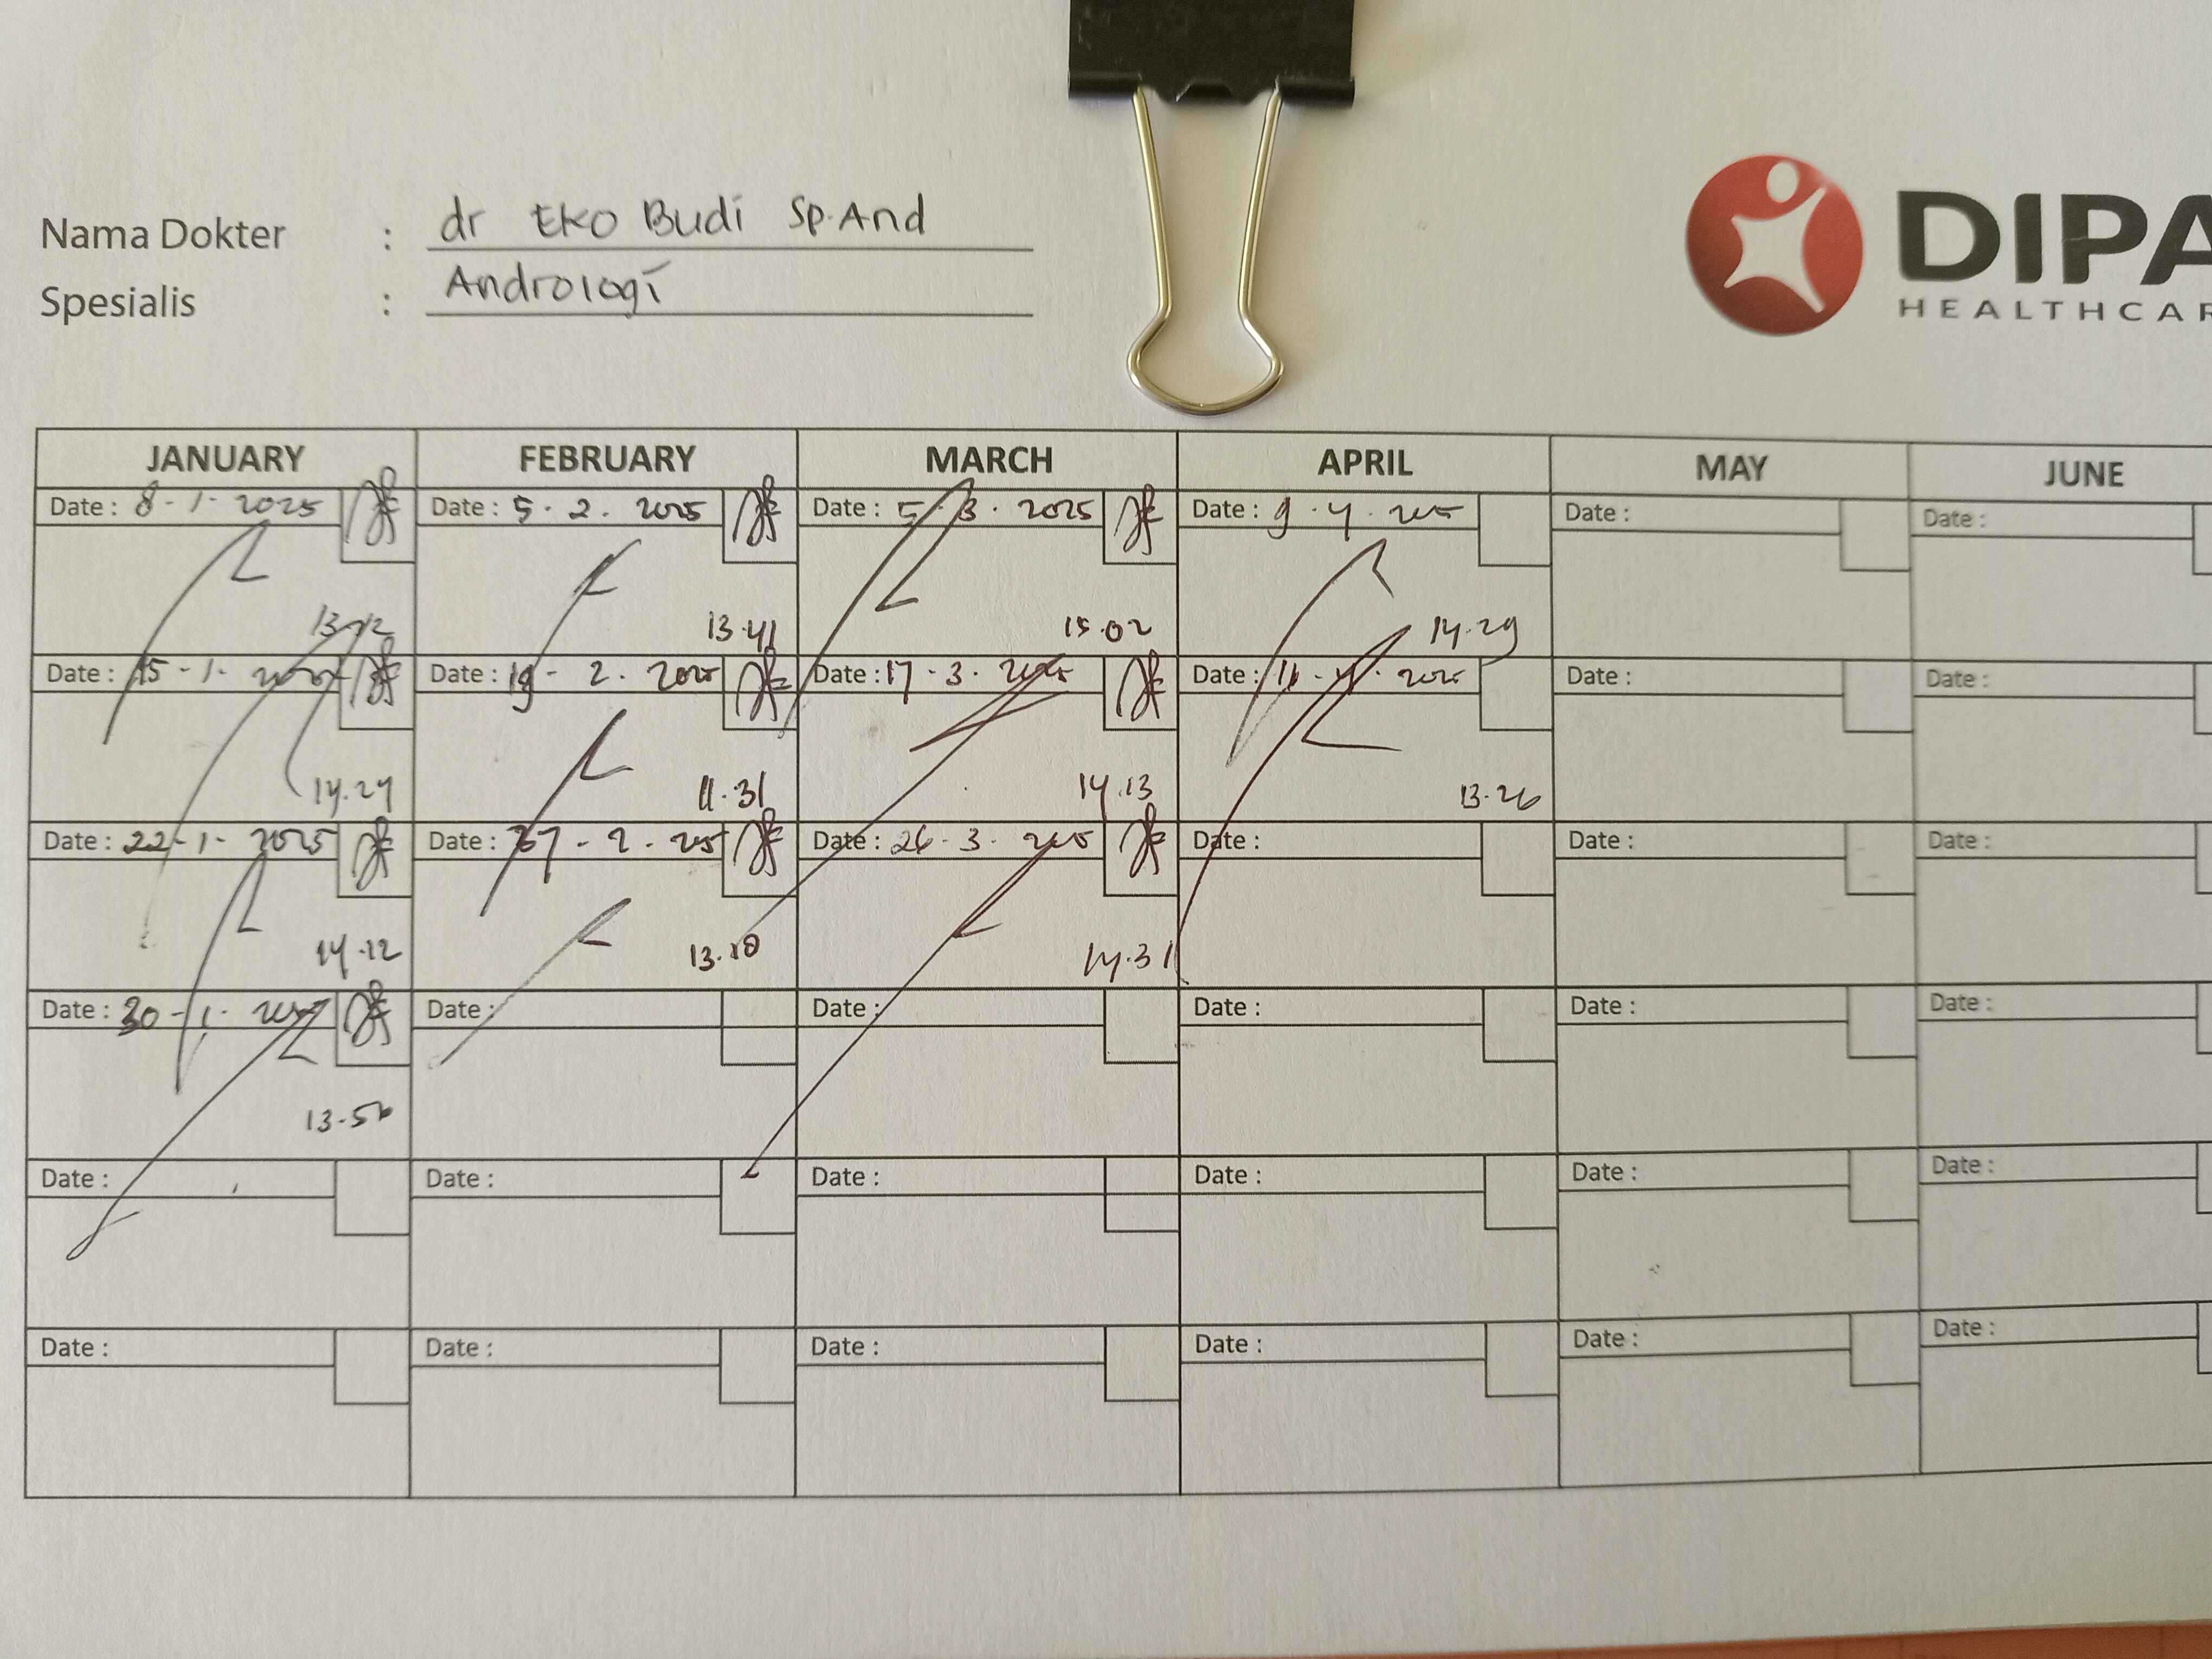 Nama Dokter : dr Eko Budi Sp.And
Spesialis : Andrologi
DIPA
HEALTHCAR
JANUARY FEBRUARY MARCH APRIL MAY JUNE
Date : 8-1-2025 Date : 5.2.2025 Date : 5.3.2025 Date : 9.4. Date : Date :
13.41 15.02 14.29
Date : 15-1- Date : 19-2.2025 Date : 17-3.2025 Date : 11-4.2025 Date : Date :
14.24 11.31 14.13 13.26
Date : 22-1-2025 Date : 27-2- Date : 26-3. Date : Date : Date :
14.12 13.10 14.31
Date : 30-1- Date : Date : Date : Date : Date :
Date : Date : Date : Date : Date : Date :
Date : Date : Date : Date : Date : Date :